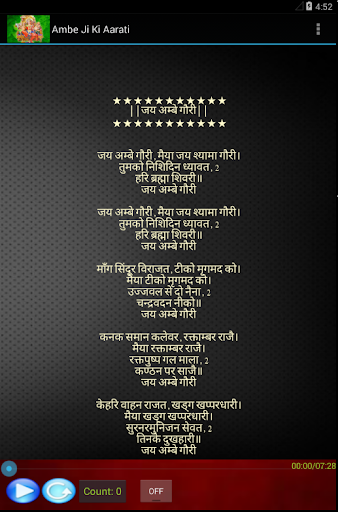 4:52
Ambe Ji Ki Aarati
★★★★★★★★★★★
||जय अम्बे गौरी||
★★★★★★★★★★★
जय अम्बे गौरी, मैया जय श्यामा गौरी।
तुमको निशिदिन ध्यावत, 2
हरि ब्रह्मा शिवरी॥
जय अम्बे गौरी
जय अम्बे गौरी, मैया जय श्यामा गौरी।
तुमको निशिदिन ध्यावत, 2
हरि ब्रह्मा शिवरी॥
जय अम्बे गौरी
माँग सिंदूर विराजत, टीको मृगमद को।
मैया टीको मृगमद को।
उज्जवल से दो नैना, 2
चन्द्रवदन नीको॥
जय अम्बे गौरी
कनक समान कलेवर, रक्ताम्बर राजै।
मैया रक्ताम्बर राजै।
रक्तपुष्प गल माला, 2
कण्ठन पर साजै॥
जय अम्बे गौरी
केहरि वाहन राजत, खड्ग खप्परधारी।
मैया खड्ग खप्परधारी।
सुरनरमुनिजन सेवत, 2
तिनके दुखहारी॥
जय अम्बे गौरी
00:00/07:28
Count: 0
OFF